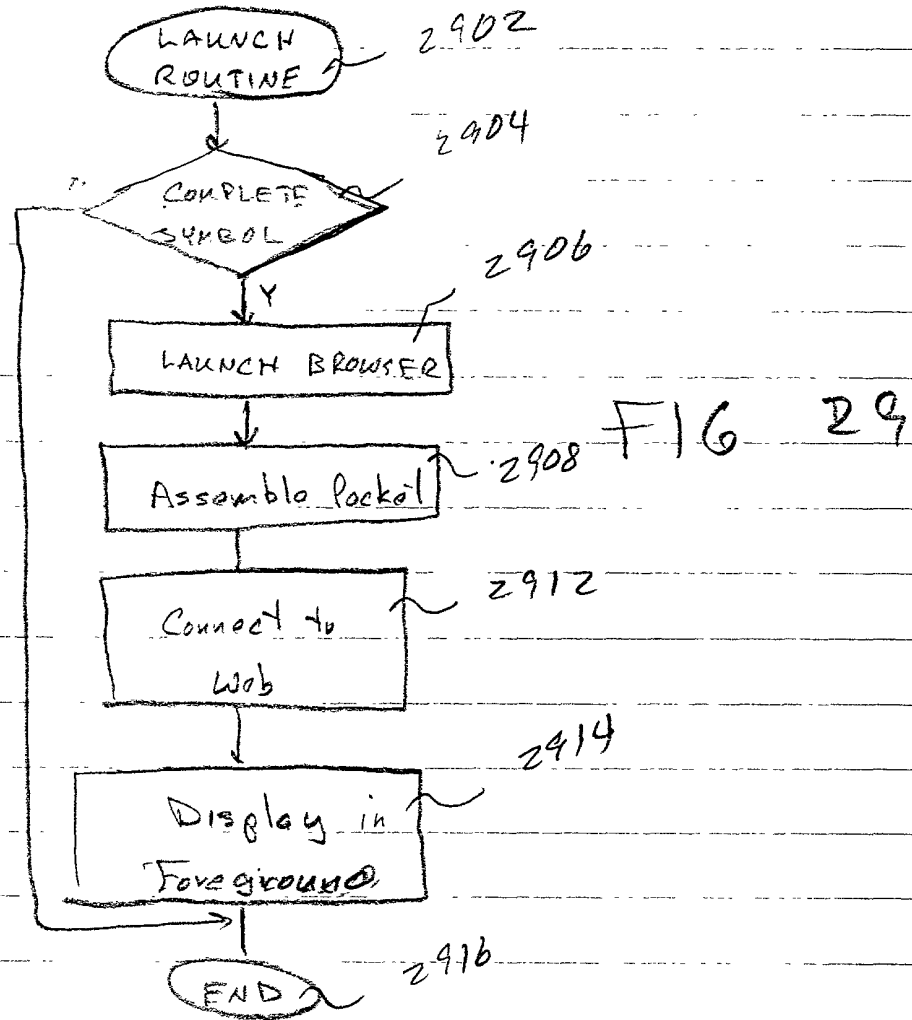 LAUNCH
ROUTINE
2902
2904
COMPLETE
SYMBOL
Y
2906
LAUNCH BROWSER
FIG 29
2908
Assemble Packet
2912
Connect to
Web
2914
Display in
Foreground
END
2916